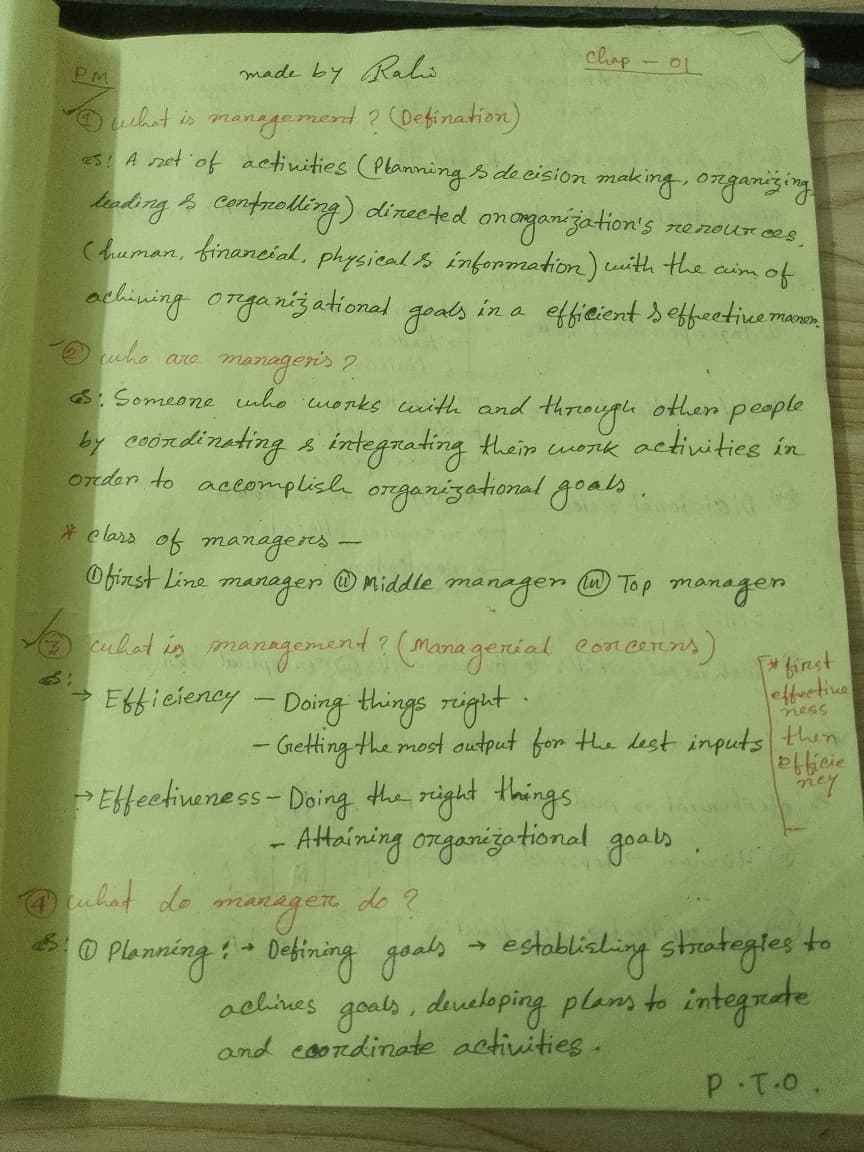 PM
made by Rahi
Chap - 01
① What is management? (Defination)
A set of activities (Planning & decision making, organizing
leading & controlling) directed on organization's resources.
(human, financial, physical & information) with the aim of
achiving organizational goals in a efficient & effective manner.
② who are managers?
Someone who works with and through other people
by coordinating & integrating their work activities in
order to accomplish organizational goals.
* class of managers —
① first Line manager ⑪ Middle manager ⑩ Top manager
③ what is management? (Managerial concerns)
→ Efficiency - Doing things right.
- Getting the most output for the lest inputs
→ Effectiveness - Doing the right things
- Attaining organizational goals.
* first
effective
ness
then
efficie
ncy
④ what do manager do?
① Planning: → Defining goals → establishing strategies to
achives goals, developing plans to integrate
and coordinate activities.
P.T.O.